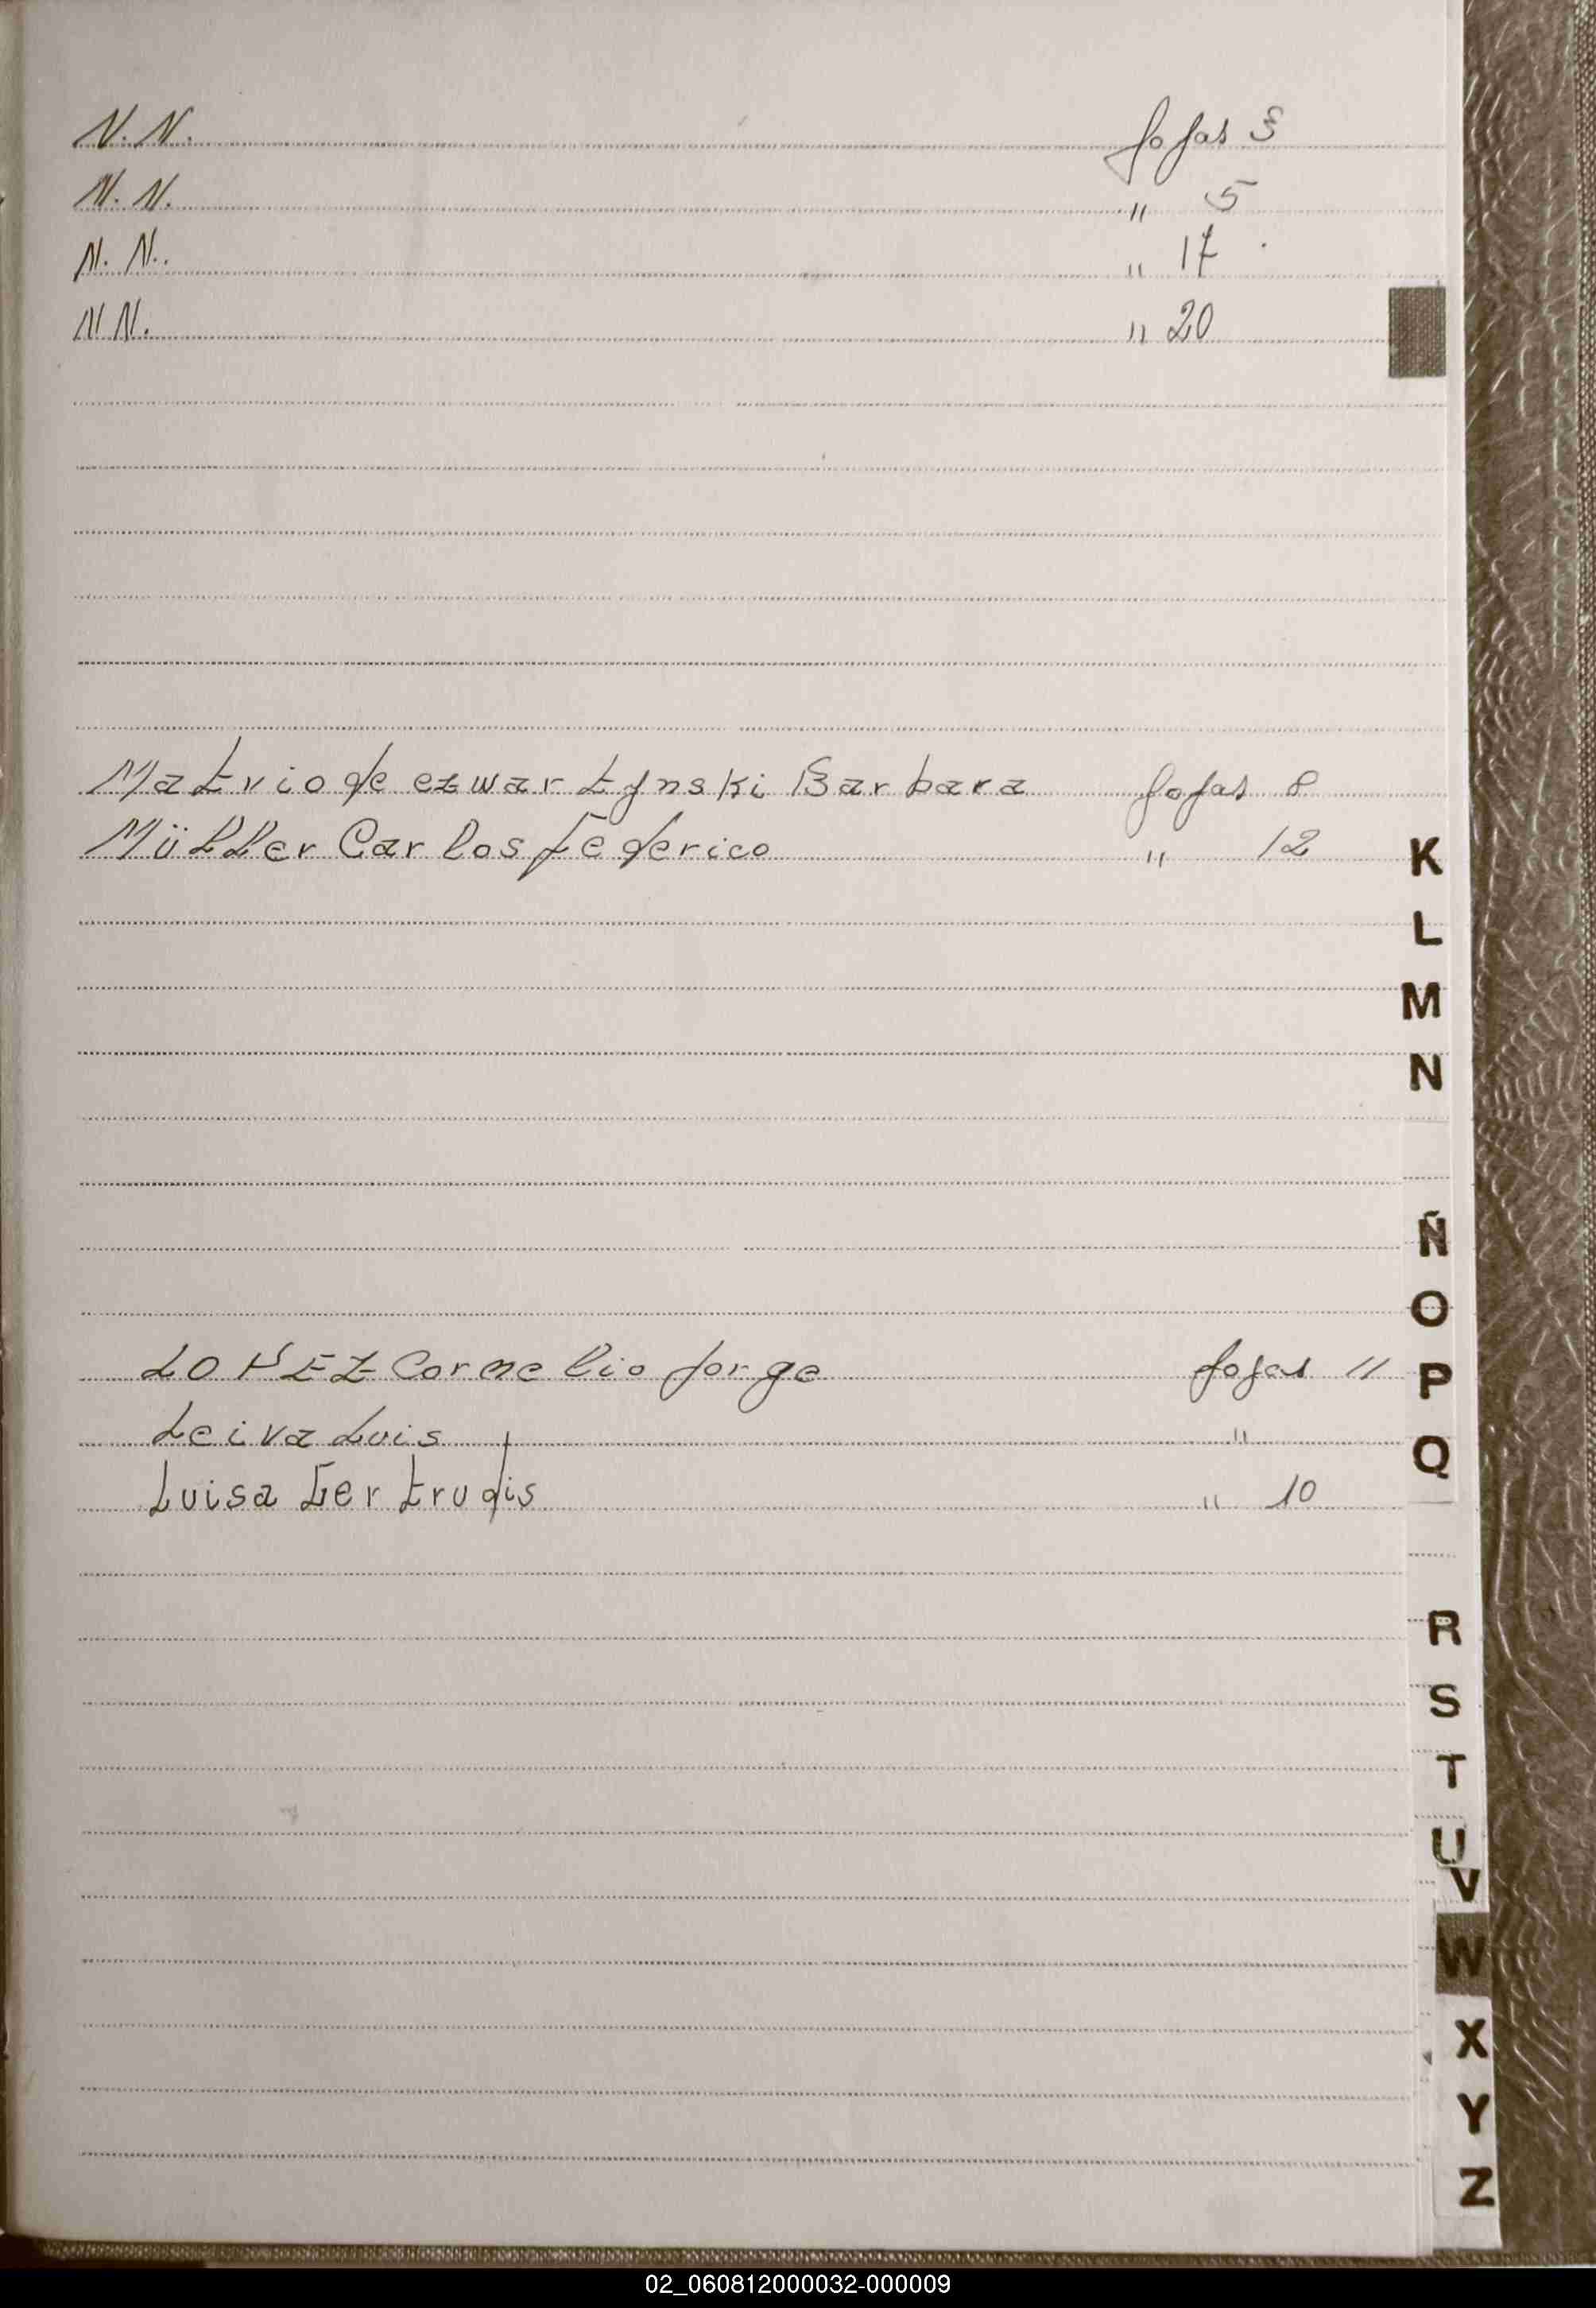 N. N. fojas 3
N. N. " 5
N. N. " 17
N N. " 20
Matvio de ezwartynski Barbara fojas 8
Müller Carlos Federico " 12
LOPEZ Cornelio Jorge fojas 11
Leiva Luis "
Luisa Gertrudis " 10
K
L
M
N
Ñ
O
P
Q
R
S
T
U
V
W
X
Y
Z
02_060812000032-000009